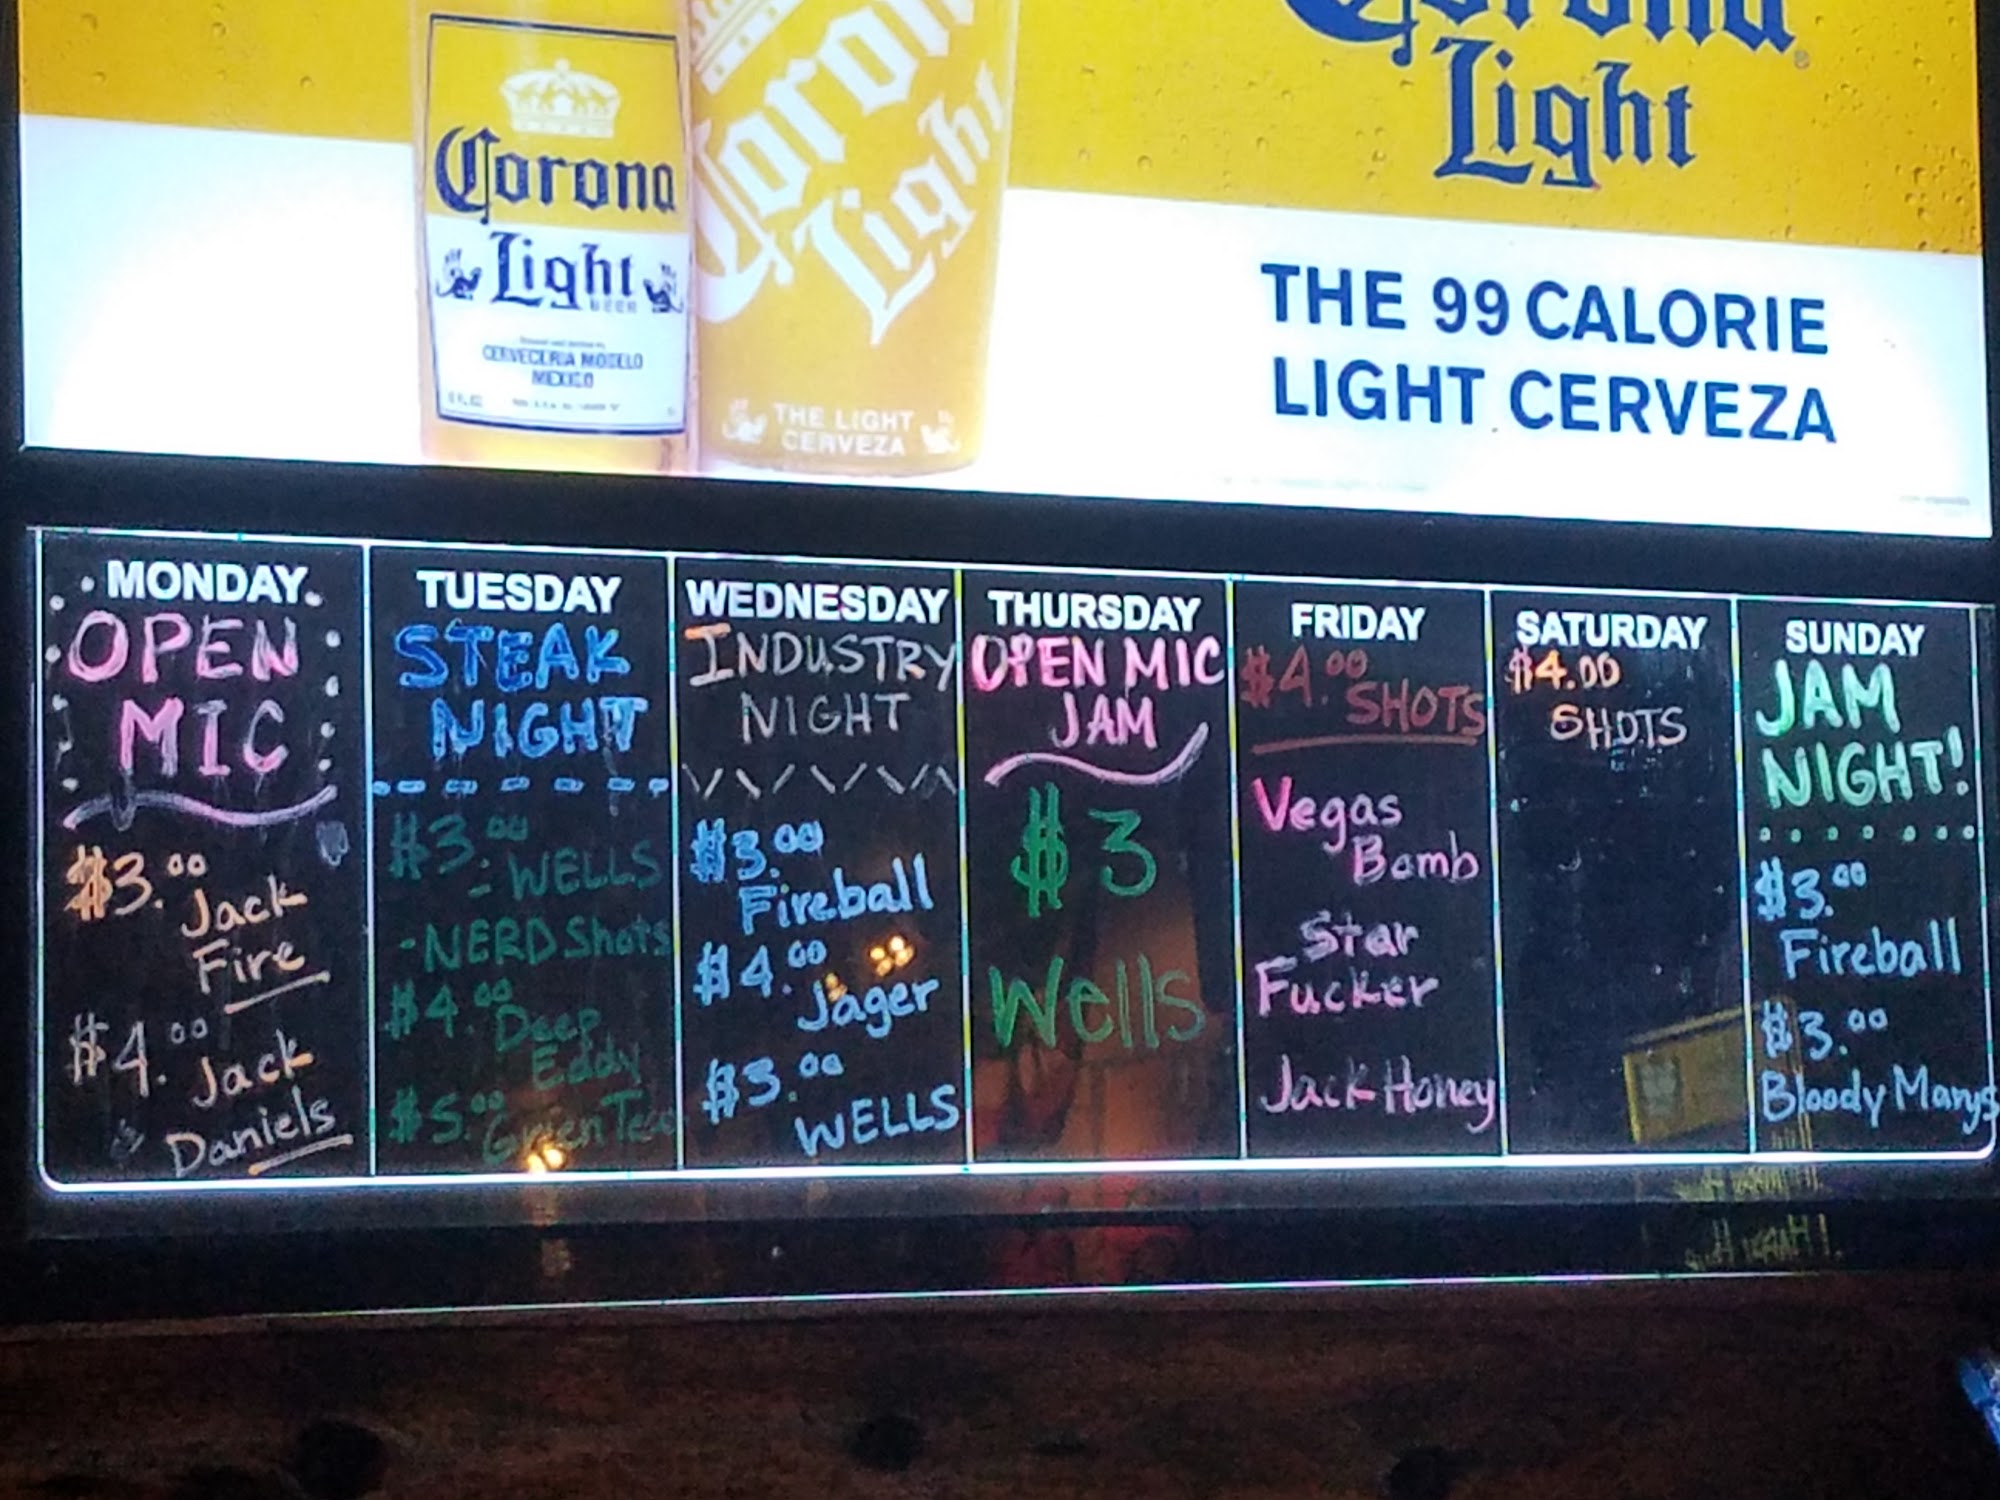 Corona
Light
BEER
CERVECERIA MODELO
MEXICO
Corona
Light
THE LIGHT
CERVEZA
Corona
Light
THE 99 CALORIE
LIGHT CERVEZA
MONDAY
OPEN
MIC
$3.00
Jack
Fire
$4.00
Jack
Daniels
TUESDAY
STEAK
NIGHT
$3.00
- WELLS
-NERD Shots
$4.00 Deep
Eddy
$5.00 Green Tea
WEDNESDAY
INDUSTRY
NIGHT
$3.00
Fireball
$4.00
Jager
$3.00
WELLS
THURSDAY
OPEN MIC
JAM
$3
Wells
FRIDAY
$4.00
SHOTS
Vegas
Bomb
Star
Fucker
Jack Honey
SATURDAY
$4.00
SHOTS
SUNDAY
JAM
NIGHT!
$3.00
Fireball
$3.00
Bloody Marys